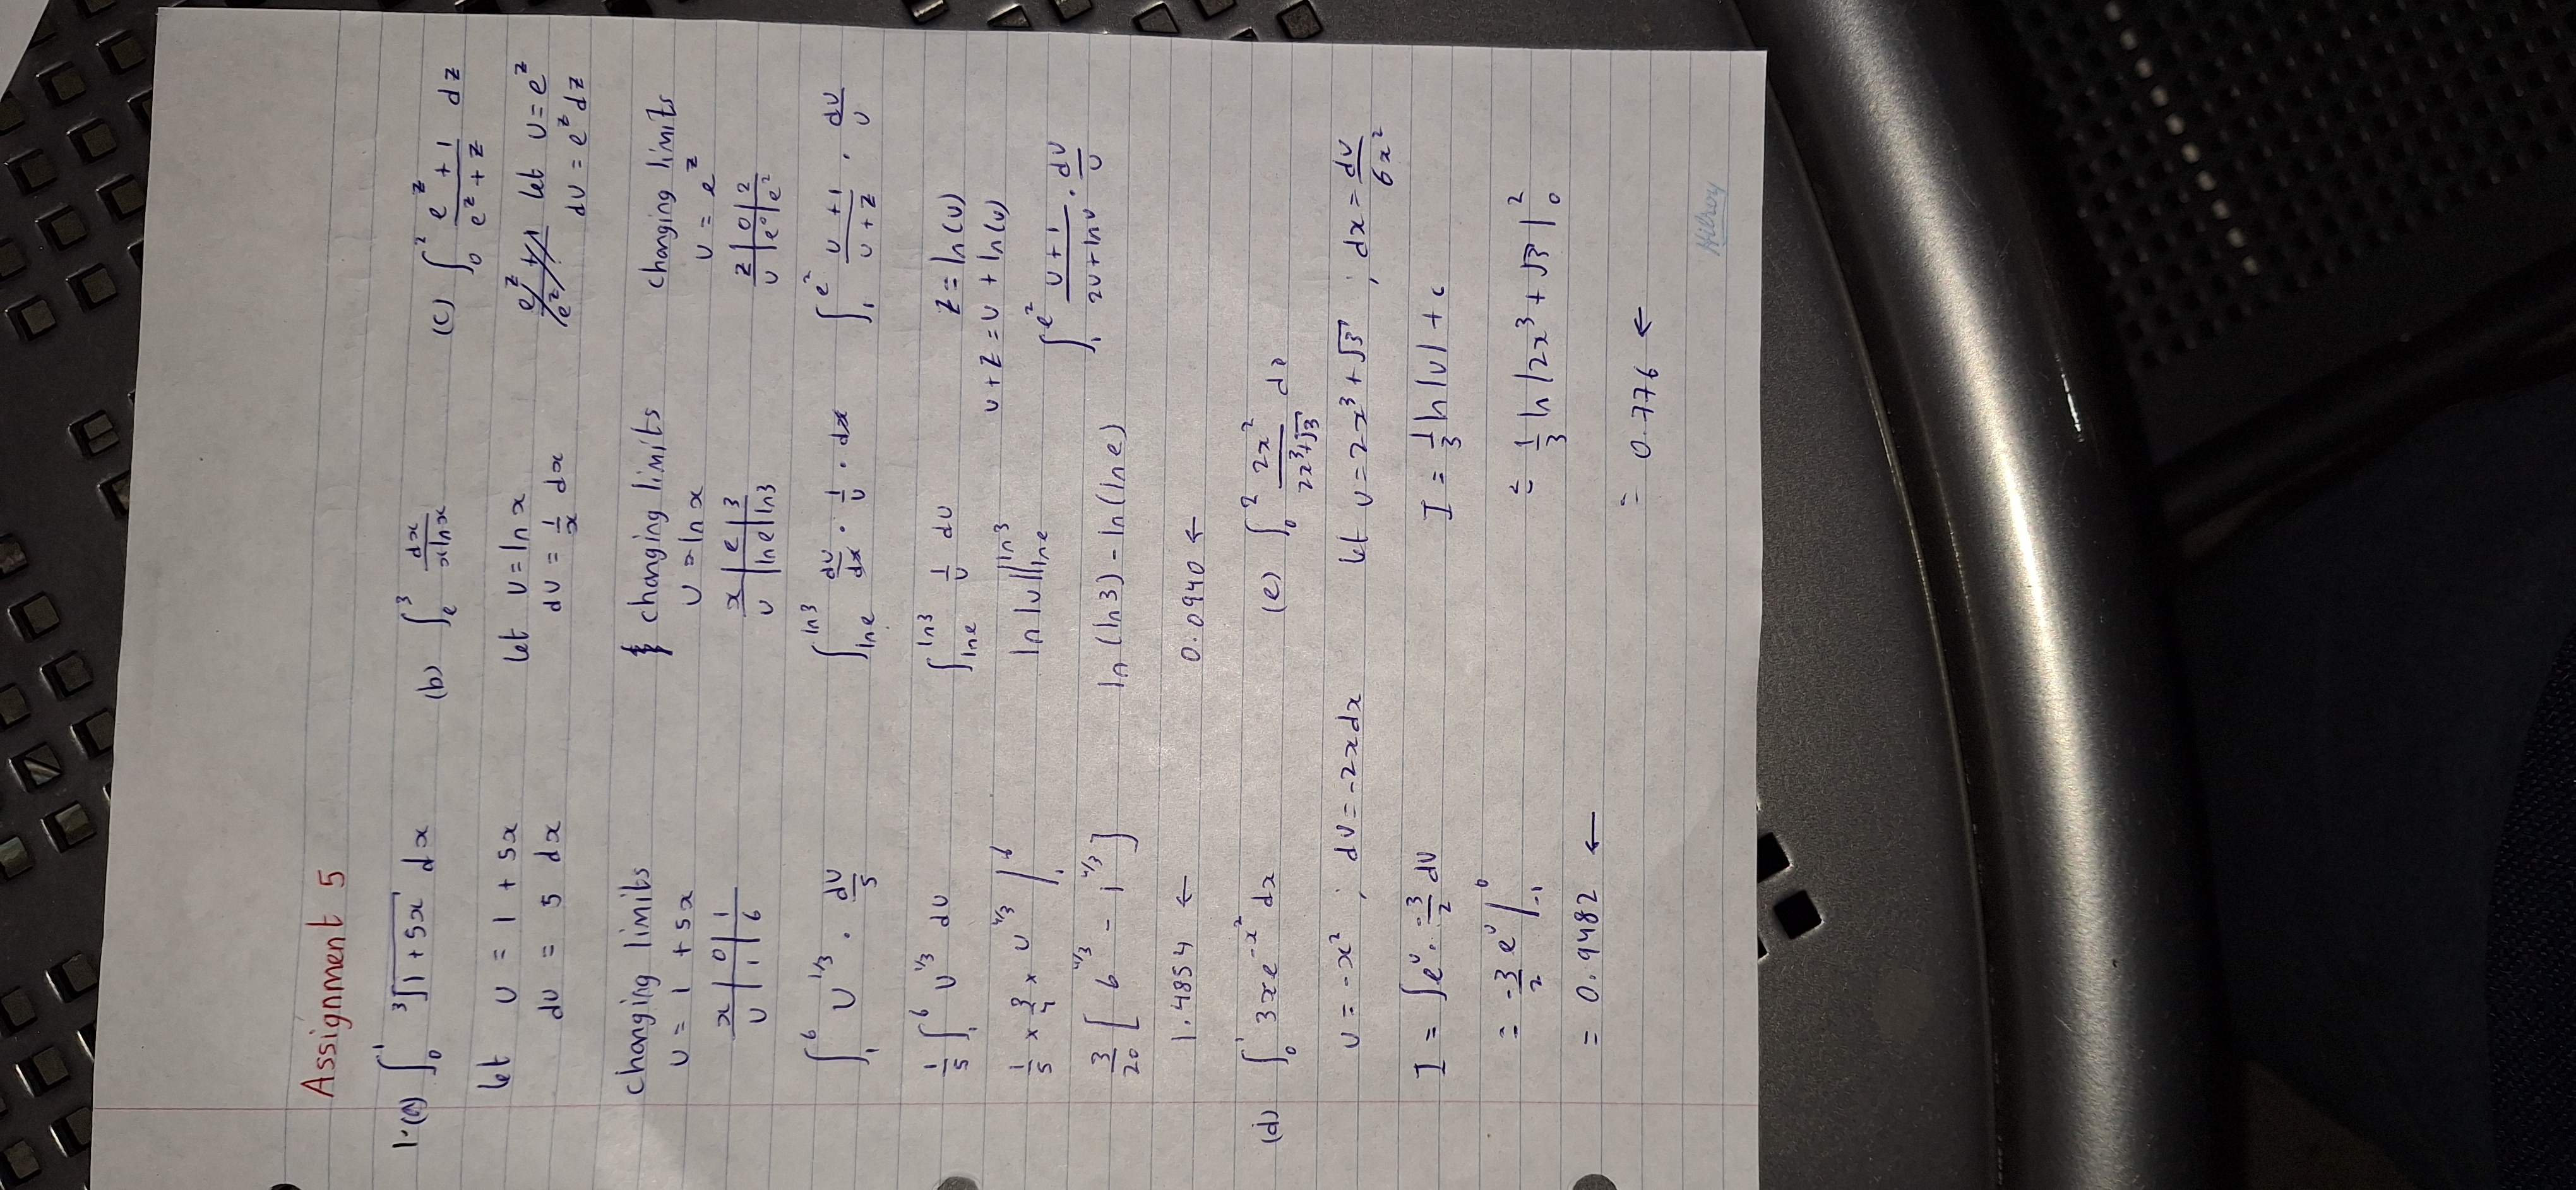 Assignment 5
1.(a) ∫₀¹ ³√(1 + 5x) dx
let u = 1 + 5x
du = 5 dx
changing limits
u = 1 + 5x
x | 0 | 1
u | 1 | 6
∫₁⁶ u^(1/3) · du/5
1/5 ∫₁⁶ u^(1/3) du
1/5 × 3/4 × u^(4/3) |₁⁶
3/20 [ 6^(4/3) - 1^(4/3) ]
1.4854 ←
(b) ∫ₑ³ dx/(x ln x)
let u = ln x
du = 1/x dx
changing limits
u = ln x
x | e | 3
u | ln e | ln 3
∫_(ln e)^(ln 3) du/dx · 1/u · dx
∫_(ln e)^(ln 3) 1/u du
ln |u| |_(ln e)^(ln 3)
ln (ln 3) - ln (ln e)
0.0940 ←
(c) ∫₀² (e^z + 1)/(e^z + z) dz
let u = e^z
du = e^z dz
changing limits
u = e^z
z | 0 | 2
u | e⁰ | e²
∫₁^(e²) (u + 1)/(u + z) · du/u
z = ln(u)
u + z = u + ln(u)
∫₁^(e²) (u + 1)/(2u + ln u) · du/u
(d) ∫₀¹ 3xe^(-x²) dx
u = -x² ; du = -2x dx
I = ∫e^u · -3/2 du
= -3/2 e^u |₋₁⁰
= 0.9482 ←
(e) ∫₀² 2x²/(2x³+√3) dx
let u = 2x³ + √3 ; dx = du/6x²
I = 1/3 ln |u| + c
= 1/3 ln |2x³ + √3| ₀²
= 0.776 ←
Hilroy